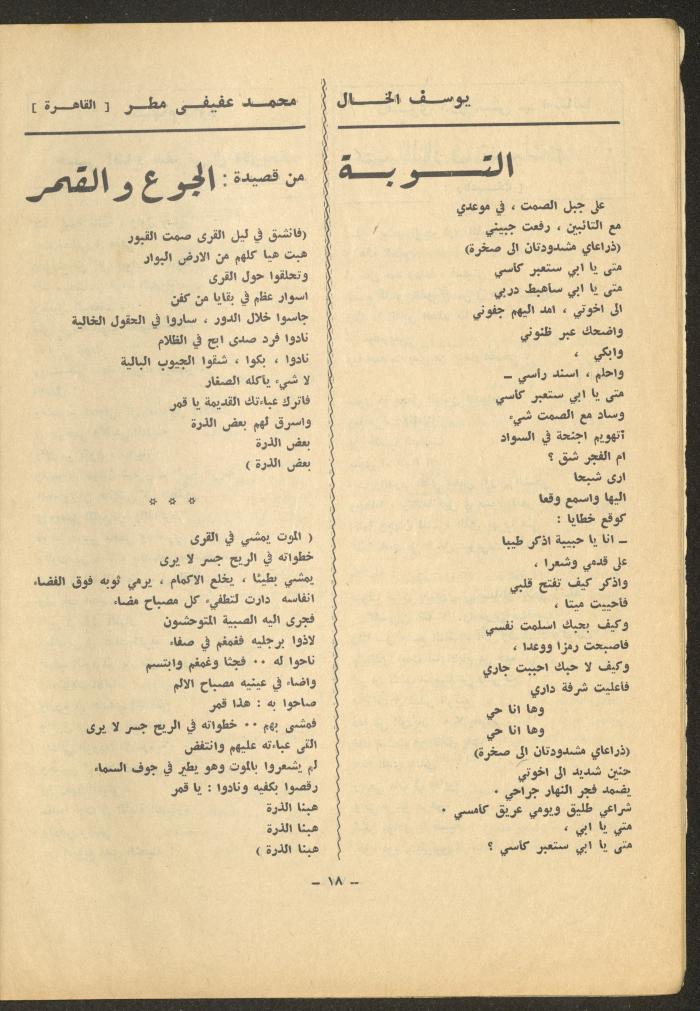 يوسف الخال
التـــوبـــة
على جبل الصمت ، في موعدي
مع التائبين ، رفعت جبيني
(ذراعاي مشدودتان الى صخرة)
متى يا ابي ستعبر كاسي
متى يا ابي ساهبط دربي
الى اخوتي ، امد اليهم جفوني
واضحك عبر ظنوني
وابكي ،
واحلم ، اسند راسي ــ
متى يا ابي ستعبر كاسي
وساد مع الصمت شيء
أتهويم اجنحة في السواد
ام الفجر شق ؟
ارى شبحا
اليها واسمع وقعا
كوقع خطايا :
ــ انا يا حبيبة اذكر طيبا
على قدمي وشعرا ،
واذكر كيف تفتح قلبي
فأحييت ميتا ،
وكيف بحبك اسلمت نفسي
فاصبحت رمزا ووعدا ،
وكيف لا حبك احببت جاري
فأعليت شرفة داري
وها انا حي
وها انا حي
(ذراعاي مشدودتان الى صخرة)
حنين شديد الى اخوتي
يضمد فجر النهار جراحي ٠
شراعي طليق ويومي عريق كامسي ٠
متى يا ابي ،
متى يا ابي ستعبر كاسي ؟
محمد عفيفى مطر [ القاهرة ]
من قصيدة : الجوع والقمر
(فانشق في ليل القرى صمت القبور
هبت هيا كلهم من الارض البوار
وتحلقوا حول القرى
اسوار عظم في بقايا من كفن
جاسوا خلال الدور ، ساروا في الحقول الخالية
نادوا فرد صدى ابح في الظلام
نادوا ، بكوا ، شقوا الجيوب البالية
لا شيء يأكله الصغار
فاترك عباءتك القديمة يا قمر
واسرق لهم بعض الذرة
بعض الذرة
بعض الذرة )
* * *
( الموت يمشي في القرى
خطواته في الريح جسر لا يرى
يمشي بطيئا ، يخلع الاكمام ، يرمي ثوبه فوق الفضاء
انفاسه دارت لتطفىء كل مصباح مضاء
فجرى اليه الصبية المتوحشون
لاذوا برجليه فغمغم في صفاء
ناحوا له ٠٠ فجثا وغمغم وابتسم
واضاء في عينيه مصباح الالم
صاحوا به : هذا قمر
فمشى بهم ٠٠ خطواته في الريح جسر لا يرى
القى عباءته عليهم وانتفض
لم يشعروا بالموت وهو يطير في جوف السماء
رقصوا بكفيه ونادوا : يا قمر
هبنا الذرة
هبنا الذرة
هبنا الذرة )
– ١٨ –